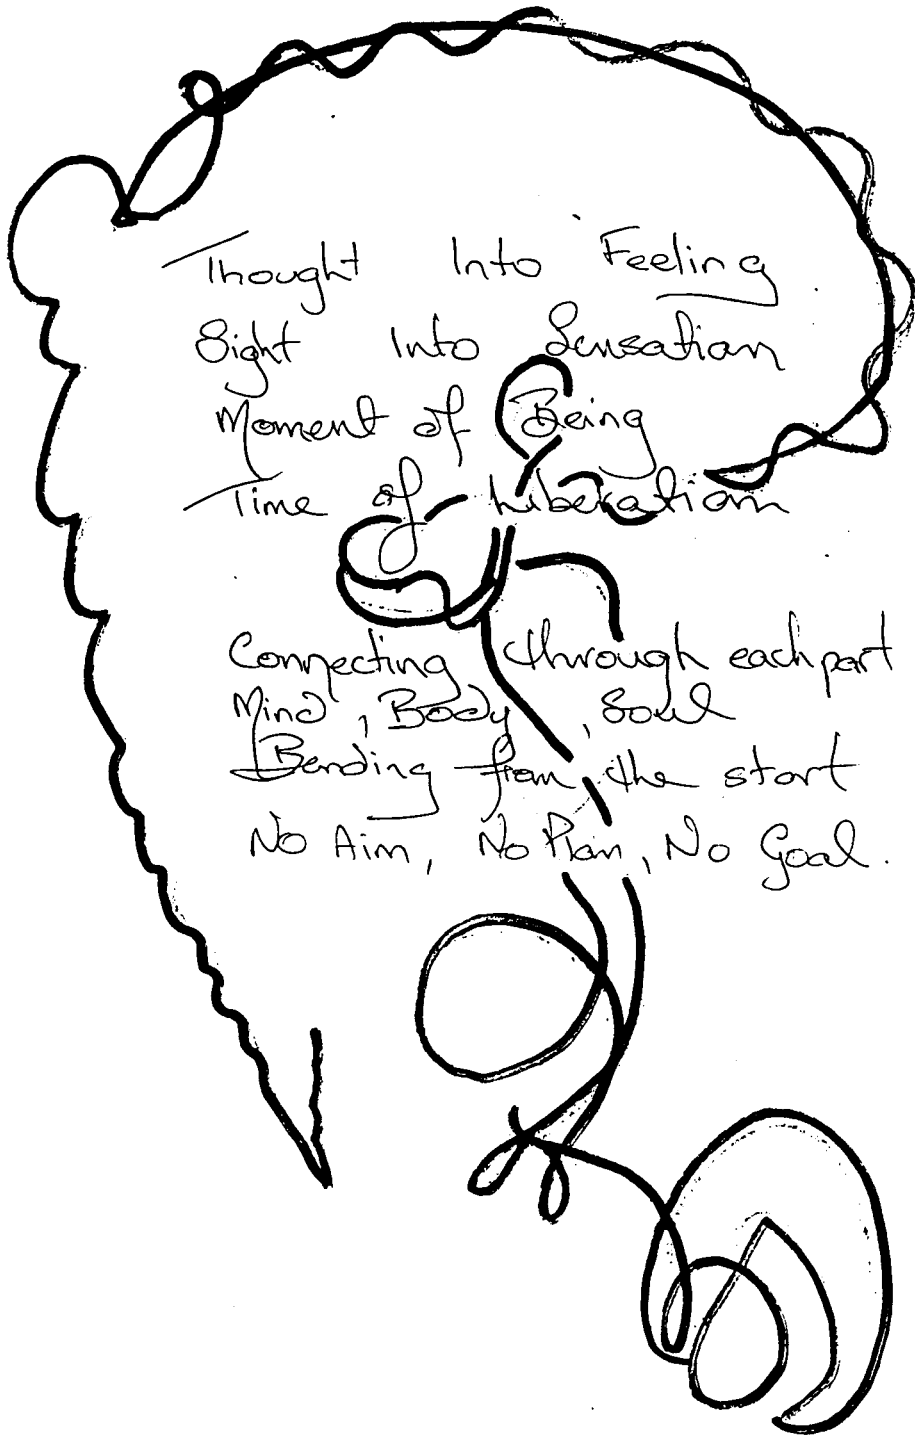 Thought Into Feeling
Sight Into Sensation
Moment of Being
Time of Liberation
Connecting through each part
Mind, Body, Soul
Bending from the start
No Aim, No Plan, No Goal.